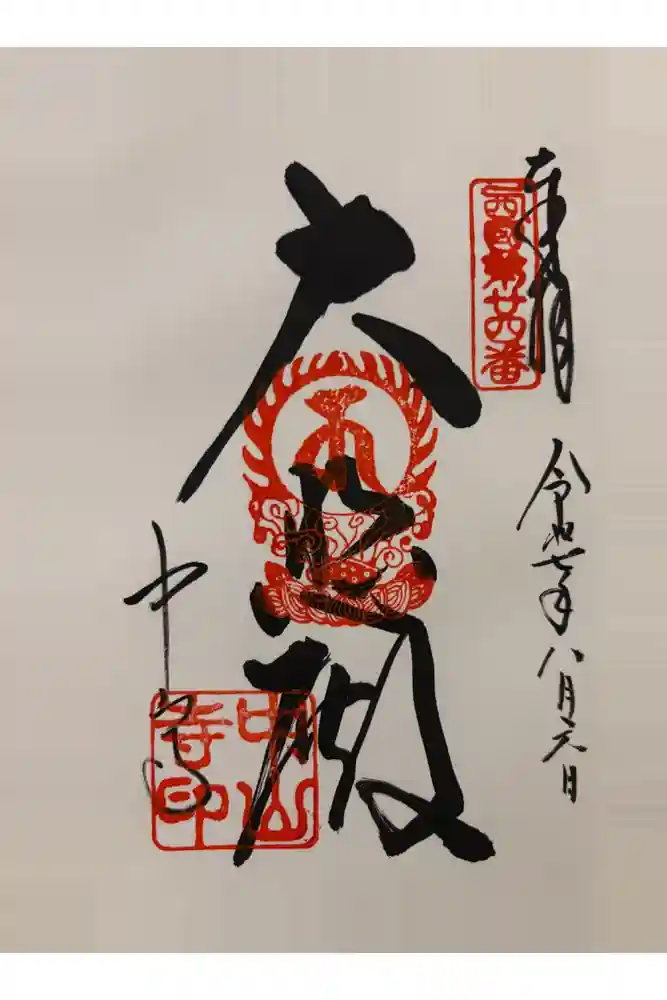 奉拝
西国第廿四番
令和七年八月六日
大悲殿
中山寺
中山寺印